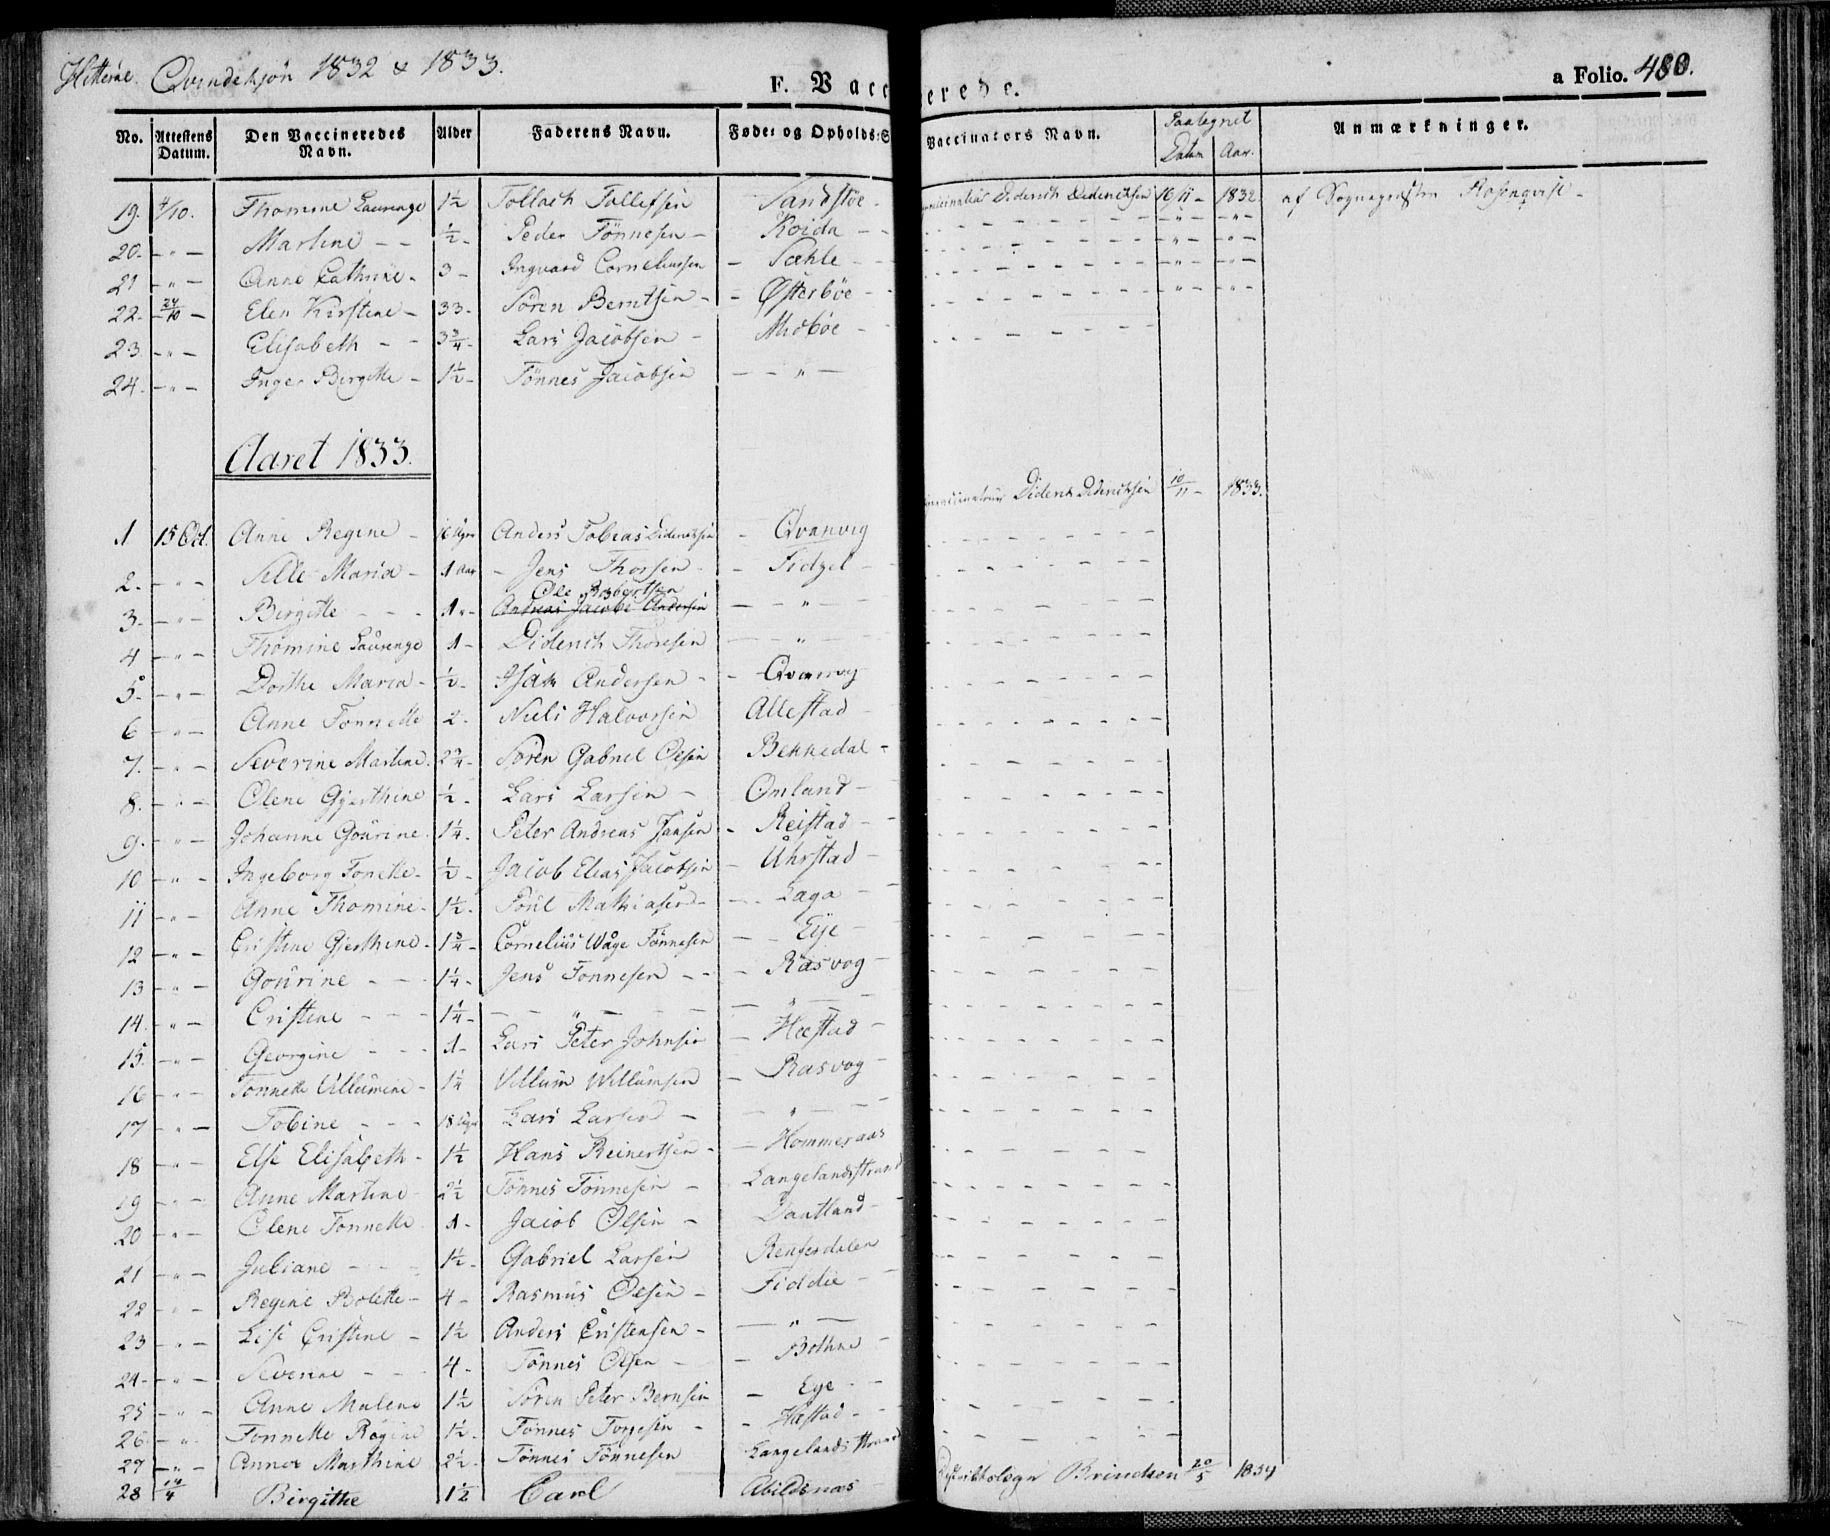 Hitterøe. Qvindekjøn 1832 & 1833.
F. Vaccinerede.
a Folio. 480.
No. | Attestens Datum. | Den Vaccineredes Navn. | Alder | Faderens Navn. | Føde- og Opholds-S | Vaccinators Navn. | Paategnet Datum | Aar. | Anmærkninger.
19. 4/10. Thomine Laurenze 1½ Tollach Tollefsen Sandstøe Didrich Didrichsen 16/11 - 1832 af Sognepræsten Rosenqvist -
20. - " - Martine - - ½ - Peder Tönnesen - Roida - " - - " -
21 - " - Anne Cathrine - 3 - Ingvard Corneliussen - Sæhle - " - - " -
22. 24/10 - Elen Kirstine - 33 - Sören Berntsen - Østerbøe - " - - " -
23. - " - Elisabeth - - 3¾ - Lars Jacobsen - Midbøe -
24. - " - Inger Birgitte - 1½ - Tönnes Jacobsen - " -
Aaret 1833.
Diderik Dideriksen 10/11 - 1833.
1 15 Oct. Anne Regine - 16 Uger Anders Tobias Dideriksen - Qvanvig
2. - " - Sille Maria - 1 Aar - Jens Thorsen - Fidzel -
Ole Robertsen
3. - " - Birgitte - - - 1 " - Andreas Jacobi Andersen - " -
4 - " - Thomine Laurenze 1 - Diderich Thorsen - " -
5. - " - Dorthe Maria - ½ - Isak Andersen - Qvanvig
6 - " - Anne Tonnette 2 - Niels Halvorsen Allestad -
7. - " - Severine Martine. 2¾ - Sören Gabriel Olsen Bekkedal -
8. - " - Olene Gjerthine ½ - Lars Larsen - Omland -
9. - " - Johanne Gourine. 1¼ - Peter Andreas Jansen - Reistad -
10 - " - Ingeborg Tonette - ½ - Jacob Elias Jacobsen - Uhrstad -
11 - " - Anne Thomine - 1½ - Poul Mathiasen - Laga -
12 - " - Cristine Gjerthine - 1¾ - Cornelius Wage Tönnesen - Eije -
13 - " - Gourine - - 1¼ - Jens Tonnesen - - Rasvog -
14. - " - Cristine - - - 1¼ - - - " - - - " -
15. - " - Georgine - - - 1 - Lars Peter Johnsen - Hæstad -
16 - " - Tonnette Villumine - 1¼ Villum Willumsen - Rasvog -
17 - " - Tobine - - - 18 Uger Lars Larsen - - " -
18 - " - Else Elisabeth - 1½ Hans Reinertsen - Hommeraas
19 - " - Anne Martine - 2½ Tönnes Tönnesen - Langelandsstrand
20 - " - Olene Tonnette 1 - Jacob Olsen - Dautland -
21 - " - Juliane - - - 1½ - Gabriel Larsen Renfesdalen
22 - " - Regine Bolette - 4 - Rasmus Olsen - Fiddie -
23 - " - Lise Cristine - 1½ Anders Cristensen - - " -
24 - " - Severine - - 4 - Tönnes Olsen - - Bothne
25 - " - Anne Malene 1½ Sören Peter Bernsen - Eye -
26 - " - Tonnette Regine 1½ - Tönnes Torjesen - Hæstad -
27 - " - Anner Marthine 2½ - Tönnes Tönnesen Langelandsstrand
28 14/4 Birgithe 1½ Carl Abildsnæs Brinchen 20/5 1834